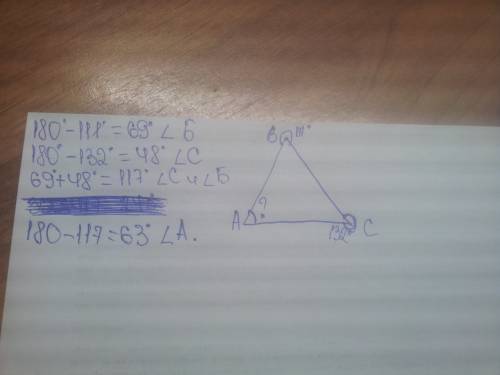 180°-111°=69° ∠Б
180°-132°=48° ∠С
69°+48°=117° ∠С и ∠Б
180-117=63° ∠А.
В 111°
А ?
132° С